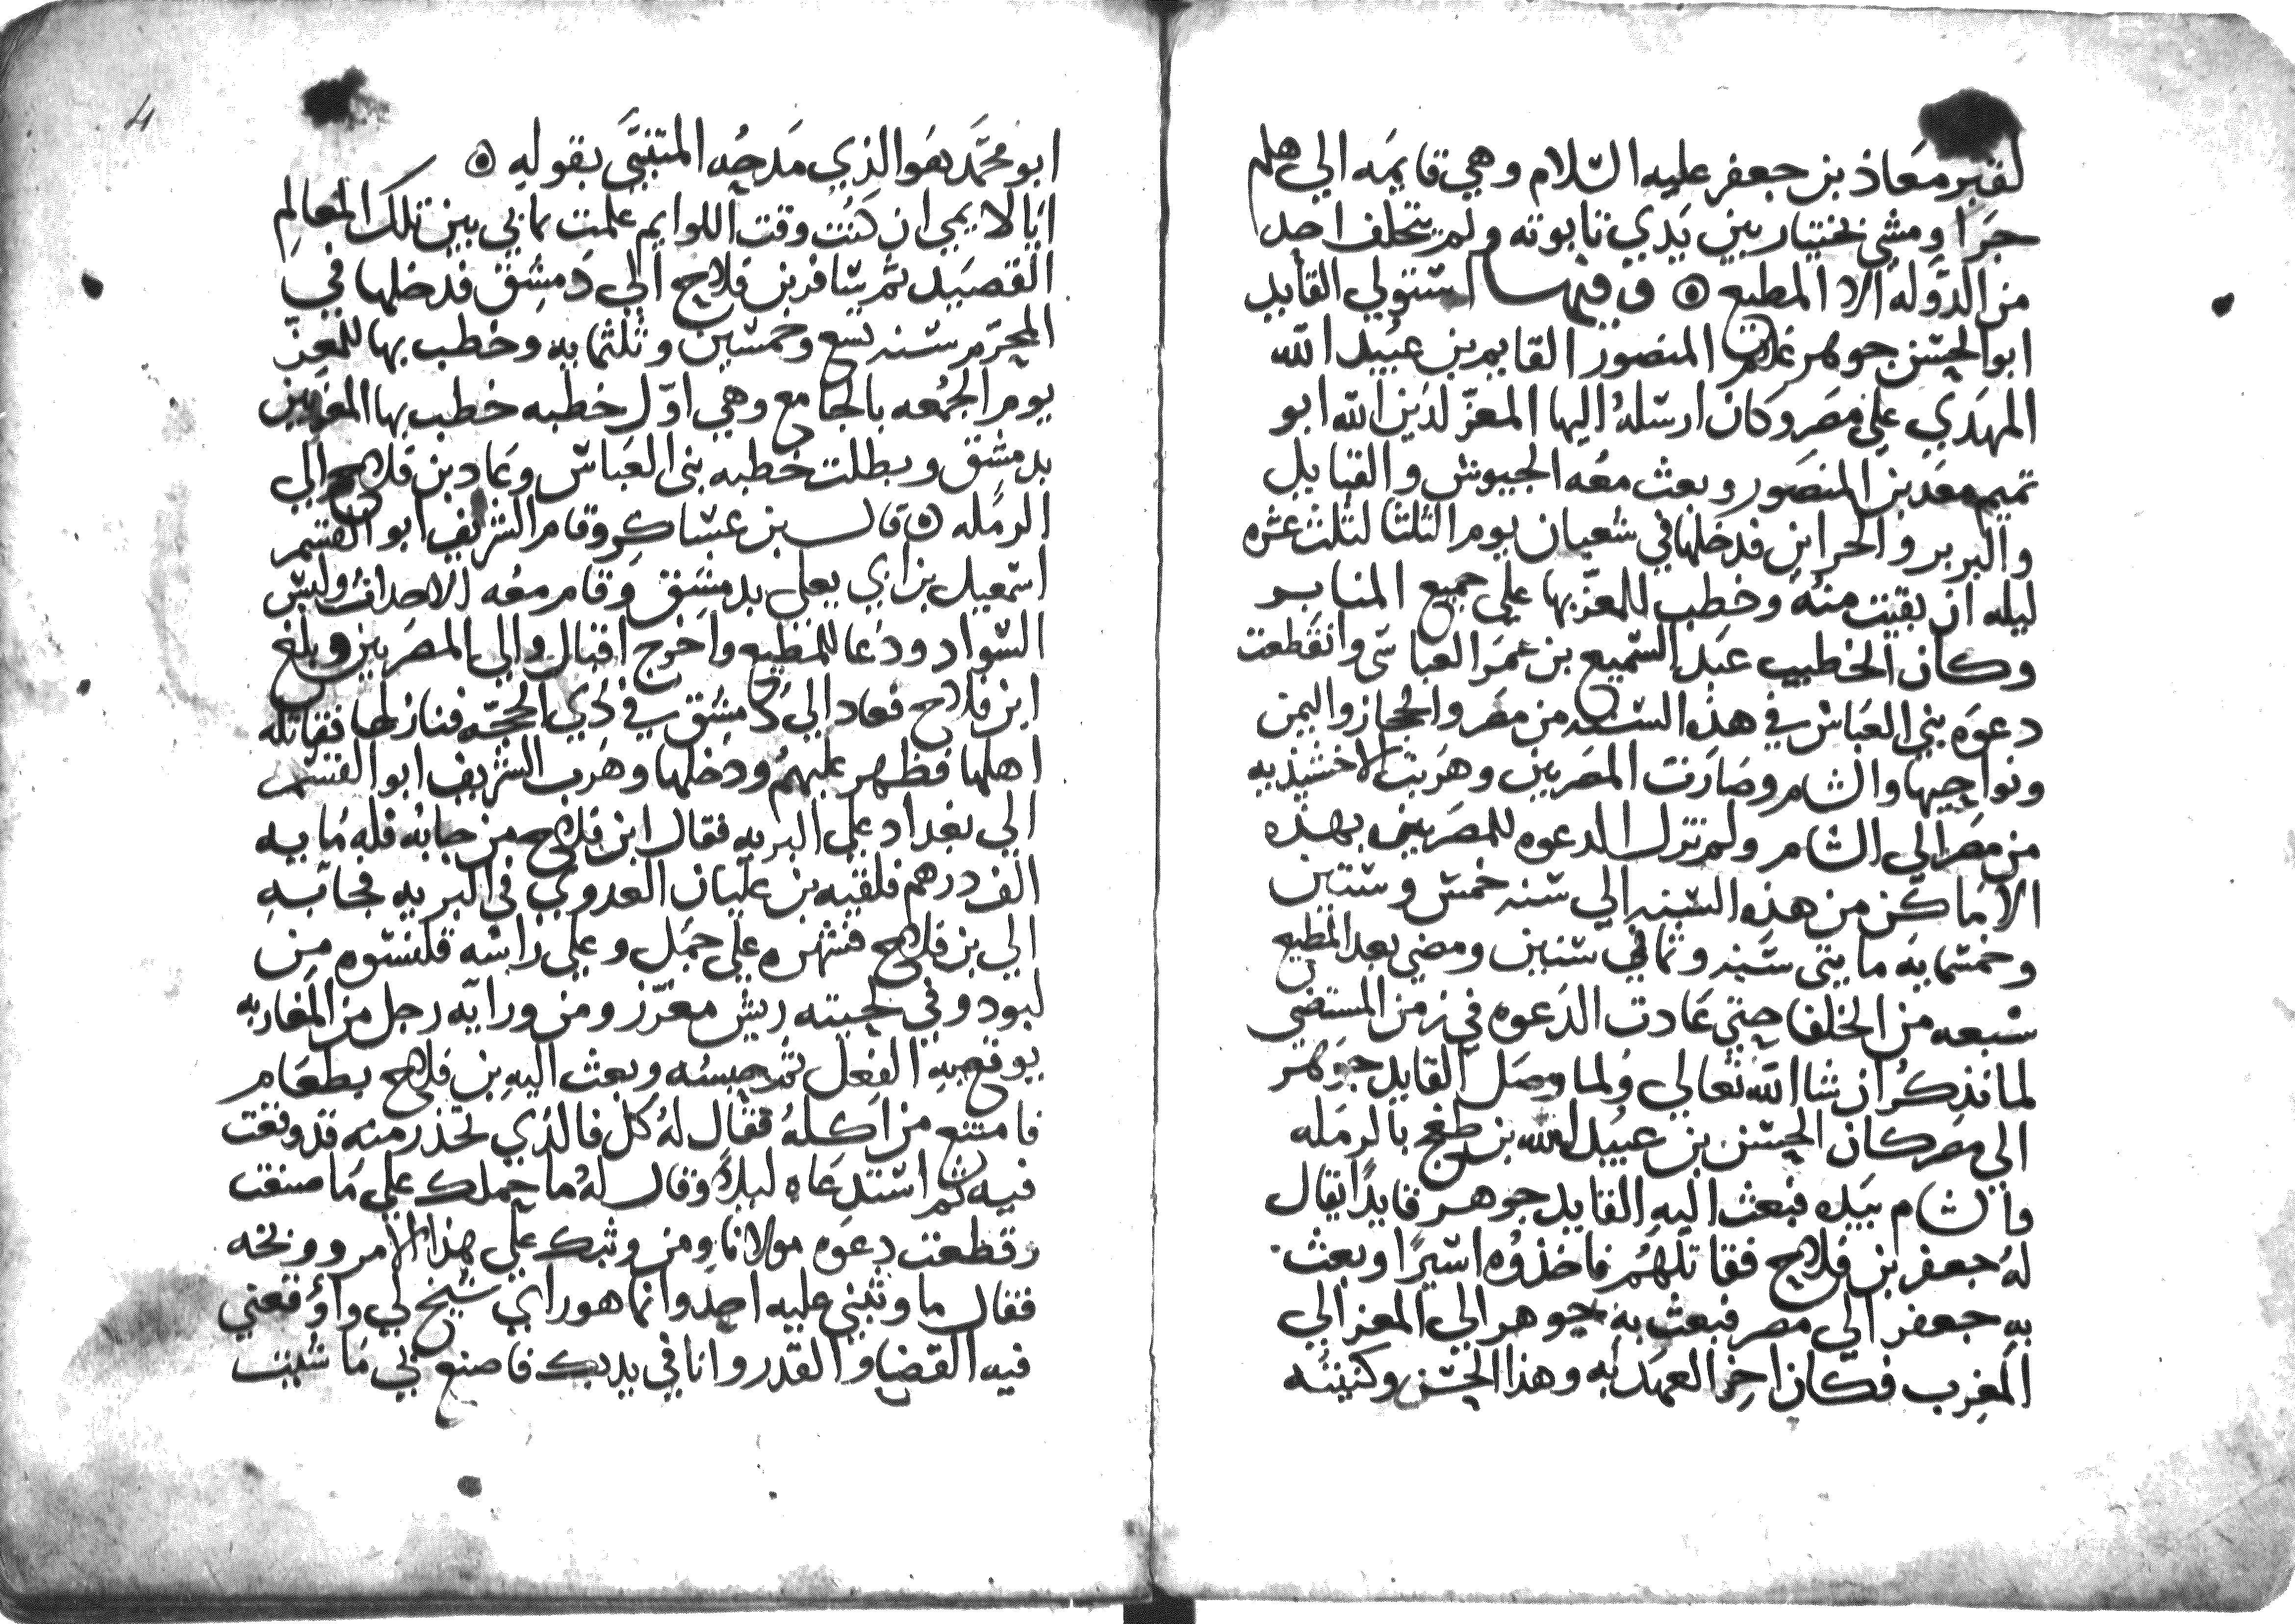 لقبر معاذ بن جعفر عليه السلام وهي قايمه الي هلم
جرا ومشي بختيار بين يدي تابوته ولم يتخلف احد
من الدوله الا المطيع ۞ وفيها استولي القايد
ابو الحسن جوهر غلام المنصور القايم بن عبيد الله
المهدي علي مصر وكان ارسله اليها المعز لدين الله ابو
تميم معد بن المنصور وبعث معه الجيوش والقبايل
والبربر والخزاين فدخلها في شعبان يوم الثلثا لثلث عشره
ليله ان بقيت منه وخطب للمعز بها علي جميع المنابر
وكان الخطيب عبد السميع بن عمر العباسي وانقطعت
دعوه بني العباس في هذه السنه من مصر والحجاز واليمن
ونواحيها والشام وصارت المصريين وهربت الاخشيذيه
من مصر الي الشام ولم تزل الدعوه للمصريين بهذه
الاماكن من هذه السنه الي سنه خمس وستين
وخمسمايه مايتي سنه وثماني سنين ومضي بعد المطيع
سبعه من الخلفا حتي عادت الدعوه في زمن المستضي
لما نذكر ان شا الله تعالي ولما وصل القايد جوهر
الي مصر كان الحسن بن عبيد الله بن طغج بالرمله
والشام بيده فبعث اليه القايد جوهر قايدا يقال
له جعفر بن فلاح فقاتلهم فاخذوه اسيرا وبعث
به جعفر الي مصر فبعث به جوهر الي المعز الي
المغرب فكان اخر العهد به وهذا الحسن وكنيته
4
ابو محمد هو الذي مدحه المتنبي بقوله ۞
انا لايمي ان كنت وقت اللوايم علمت بمابي بين تلك المعالم
القصيد ثم سافر بن فلاح الي دمشق فدخلها في
المحرم سنه تسع وخمسين وثلثمايه وخطب بها للمعز
يوم الجمعه بالجامع وهي اول خطبه خطب بها المغربين
بدمشق وبطلت خطبه بني العباس وعاد بن فلاح الي
الرمله ۞ قال بن عساكر وقام الشريف ابو القسم
اسمعيل بن ابي يعلي بدمشق وقام معه الاحداث ولبس
السواد ودعا للمطيع واخرج اقبال والي المصريين وبلغ
ابن فلاح فعاد الي دمشق في ذي الحجه فنازلها فقاتله
اهلها فظهر عليهم ودخلها وهرب الشريف ابو القسم
الي بغداد علي البريه فقال ابن فلاح من جابه فله مايه
الف درهم فلقيه بن عليان العدوي في البريه فجابه
الي بن فلاح فشهره علي جمل وعلي راسه قلنسوه من
لبود وفي لحيته ريش مغرز ومن ورايه رجل من المغاربه
يوقع به الفعل ثم حبسه وبعث اليه بن فلاح بطعام
فامتنع من اكله فقال له كل فالذي تحذر منه قد وقعت
فيه ثم استدعاه ليلا وقال له ما حملك علي ما صنعت
وقطعت دعوه مولانا ومن وثبك علي هذا الامر ووبخه
فقال ما وثبني عليه احد وانما هو راي سنح لي واوقعني
فيه القضا والقدر وانا في يديك فاصنع بي ما شيت